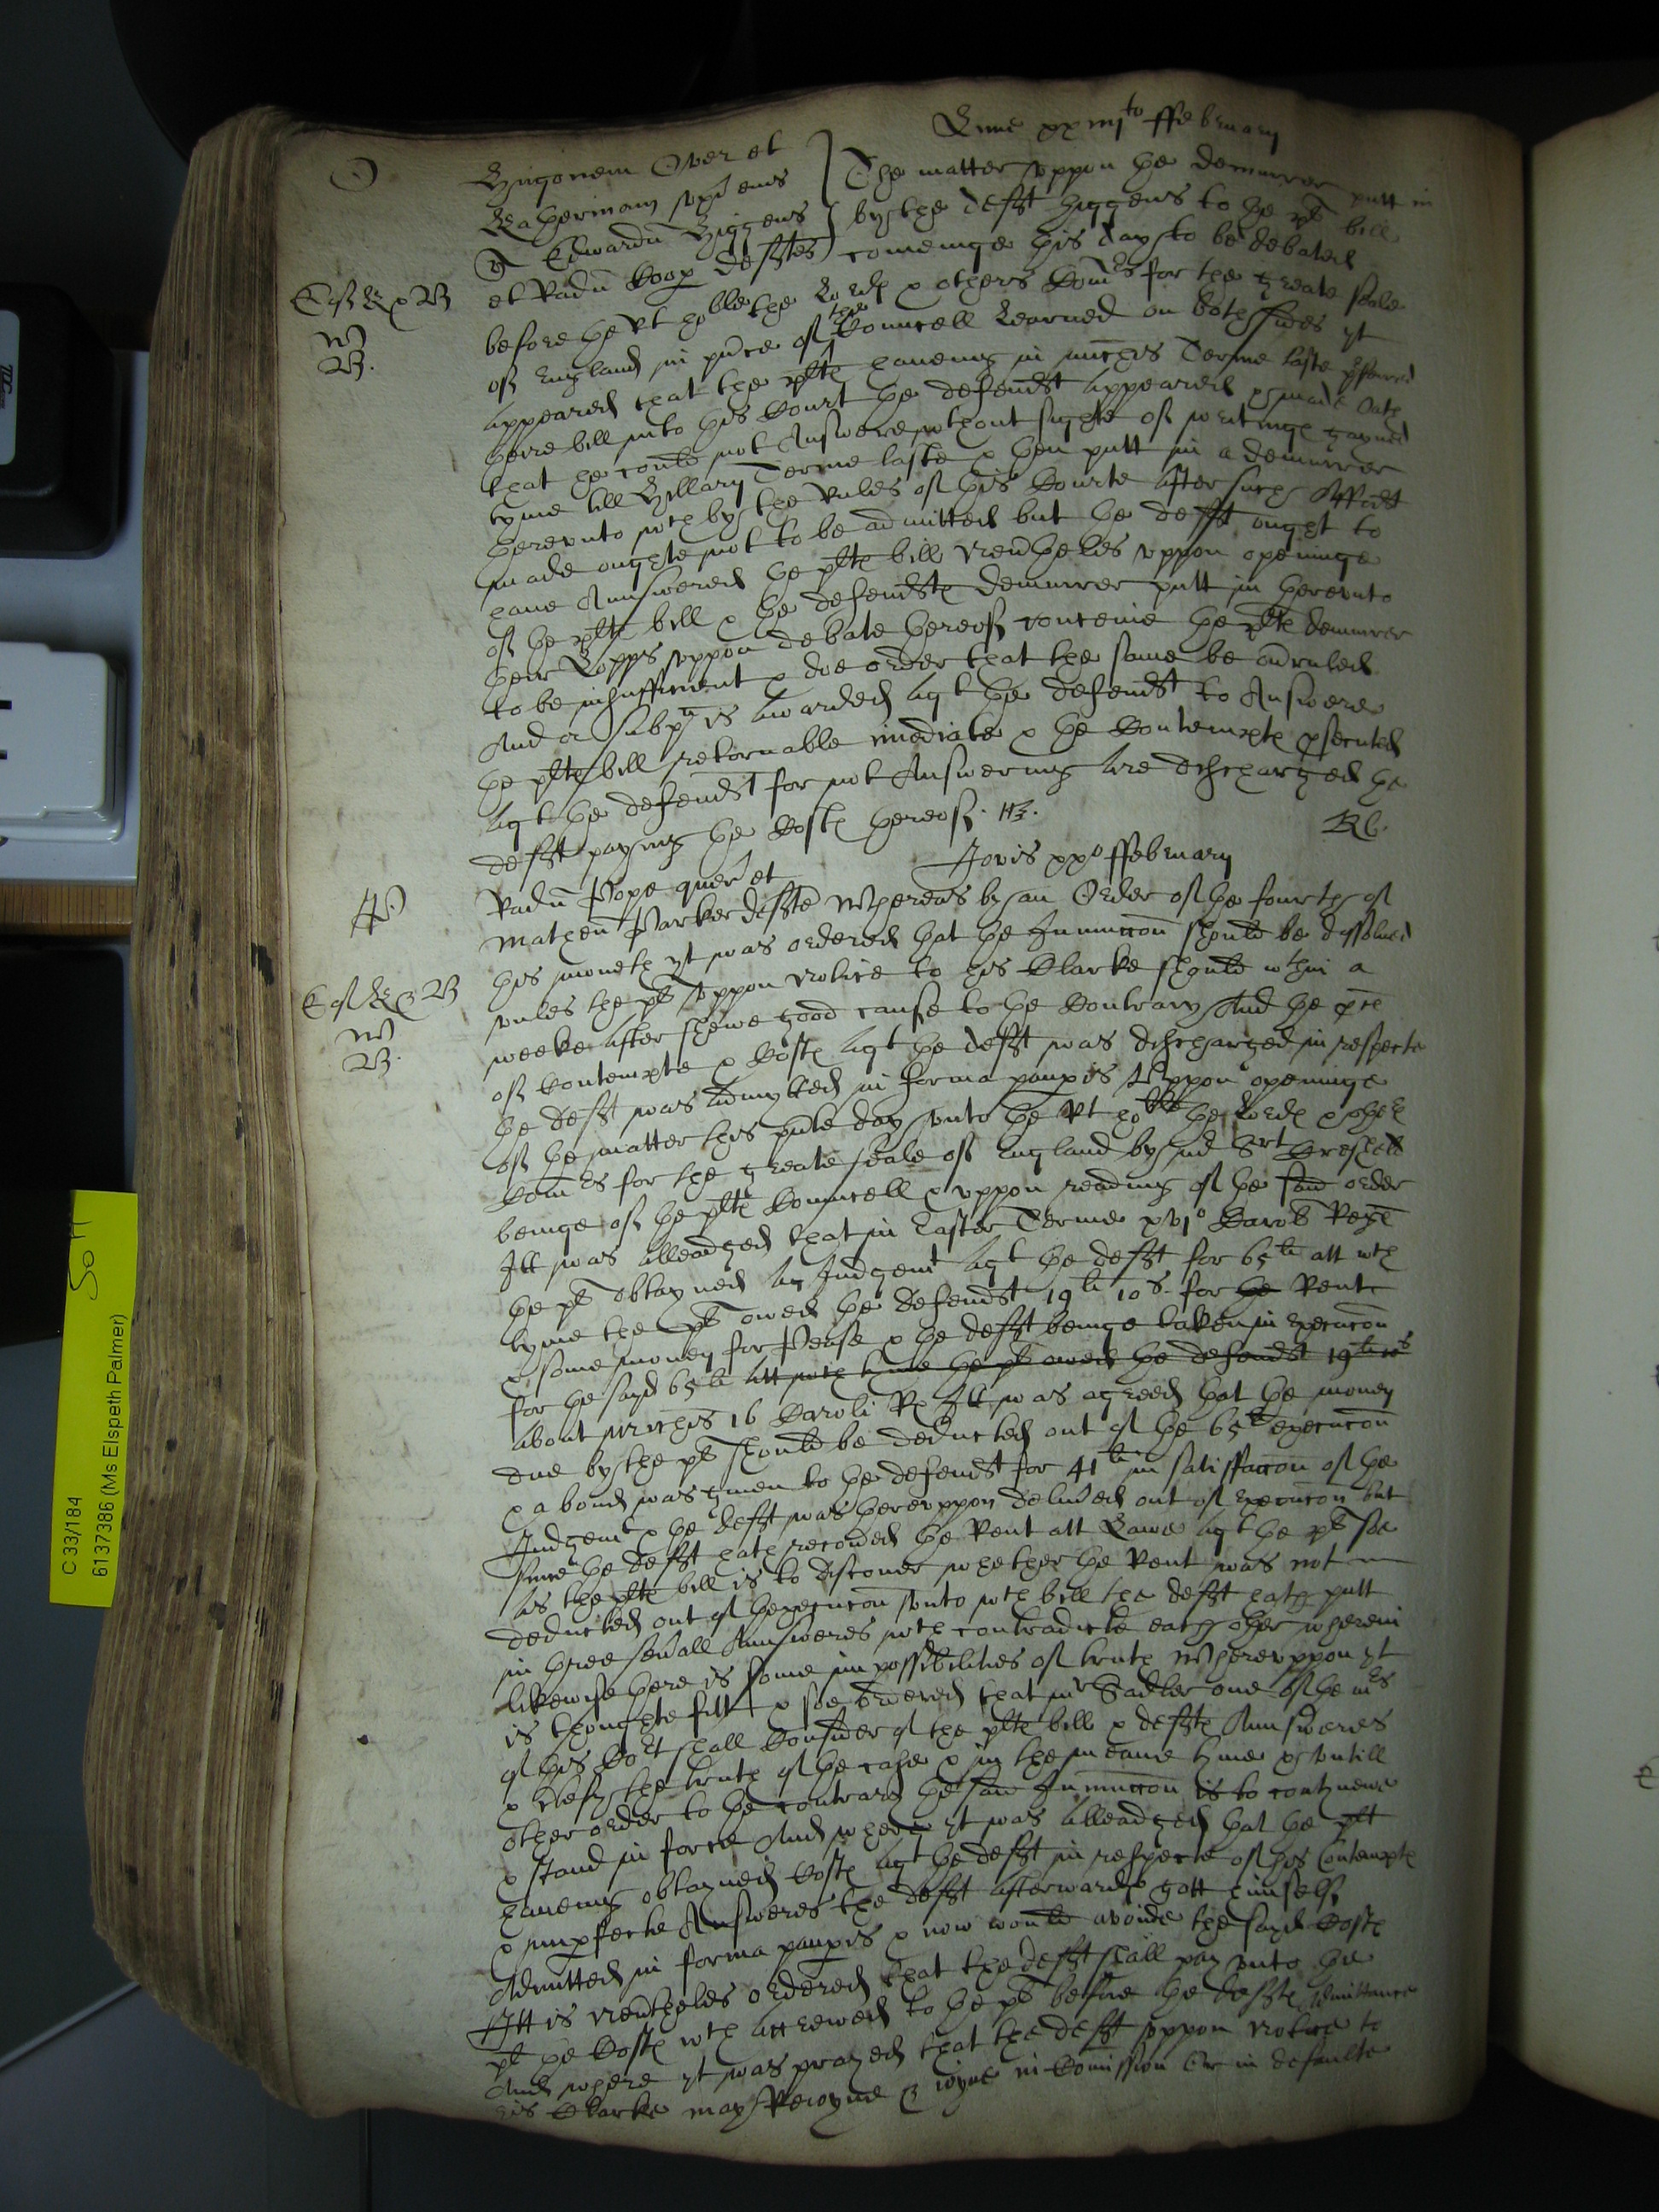 Lune xxiiij^to ffebruary
O
Hugonem Over et
Katherinam ux eius
q Edwardu Higgens
et Radu Coox defftes
The matter uppon the demurrer putt in
by the defft Higgens to the plt bill
comeinge this day to be debated
before the Rt ho:ble the Lords & others Com:rs for the greate seale
of England in p:nce of the Councell Learned on both sides yt
appeared that the plts haveing in Mich:is Terme laste p:ferred
there bill into this Court the defend:t appeared & made Oath
that he could not Answere w:thout sighte of writings gayned
tyme till Hillary Terme laste & then putt in a demurrer
thereunto w:ch by the Rules of this Courte after such Affid:t
made oughte not to be admitted but the defft ought to
have Answered the plts bill Nev:theles uppon openinge
of the plts bill & the defend:ts demurrer putt in thereunto
their Lo:pps uppon debate thereof conceive the plts demurrer
to be insufficient & doe order that the same be ov:ruled
And a subp:a is awarded ag:t the defend:t to Answere
the plts bill retornable imediate & the Contempts p:secuted
ag:t the defend:t for not Answering are discharged the
defft paying the Costs thereof.
Jovis xx:o ffebruary
P
Radu Pope quer et
Matheu Parker defftes
Whereas by an Order of the fourth of
this moneth yt was ordered that the Iniuncc:on should be dissolved
unles the plt uppon notice to his Clarke should w:thin a
weeke after shewe good cause to the Contrary And the p:ces
of Contempte & Costs ag:t the defft was discharged in respecte
the defft was admytted in forma paup:is Uppon openinge
of the matter this p:nte day unto the Rt ho:ble the Lords & others
Com:rs for the greate seale of England by M:r S:rt Creswell
beinge of the plts Councell & uppon reading of the said order
Itt was alleadged that in Easter Terme xvj:o Caroli Regis
the plt obtayned a Judgem:t ag:t the defft for 65:li att w:ch
tyme the plt owed the defend:t 19:li 10:s for the Rente
& some money for Pease & the defft beinge taken in Execucon
for the sayd 65:li att w:ch tyme the plt owed the defend:t 19:li 10:s
about Mich:is 16 Caroli R:s Itt was agreed that the money
due by the plt should be deducted out of the 65:li execucon
& a bond was given to the defend:t for 41:li in satisfaccon of the
Judgem:t & the defft was thereuppon deliv:ed out of Execucon but
since the defft hath recov:ed the Rent att Lawe ag:t the plt soe
as the plts bill is to discover whether the Rent was not
deducted out of the execucon unto w:ch bill the defft hath putt
in three sev:all Answeres w:ch contradicte each other wherein
likewise there is some impossibilities of truth Whereuppon yt
is thoughte fitt & soe ordered that M:r Sadler one of the M:rs
of this Co:rt shall Consider of the plts bill & deffts Answeres
& c:tefy the truth of the case & in the meane tyme & untill
other order to the contrary the said Iniuncc:on is to contynewe
& stand in force And where yt was alleadged that the plt
haveing obtayned Costs ag:t the defft in respecte of his Contempts
& imp:fecte Answeres the defft afterwards gott himself
Admitted in forma paup:is & now would avoide the sayd Costs
Itt is nev:theles ordered that the defft shall pay unto the
plt the Costs w:ch accrewed to the plt before the deffts admittance
And where yt was prayed that the defft uppon notice to
his Clarke may Rejoyne & joyne in Comission Or in defaulte
C 33/184
61 37386 (Ms Elspeth Palmer)